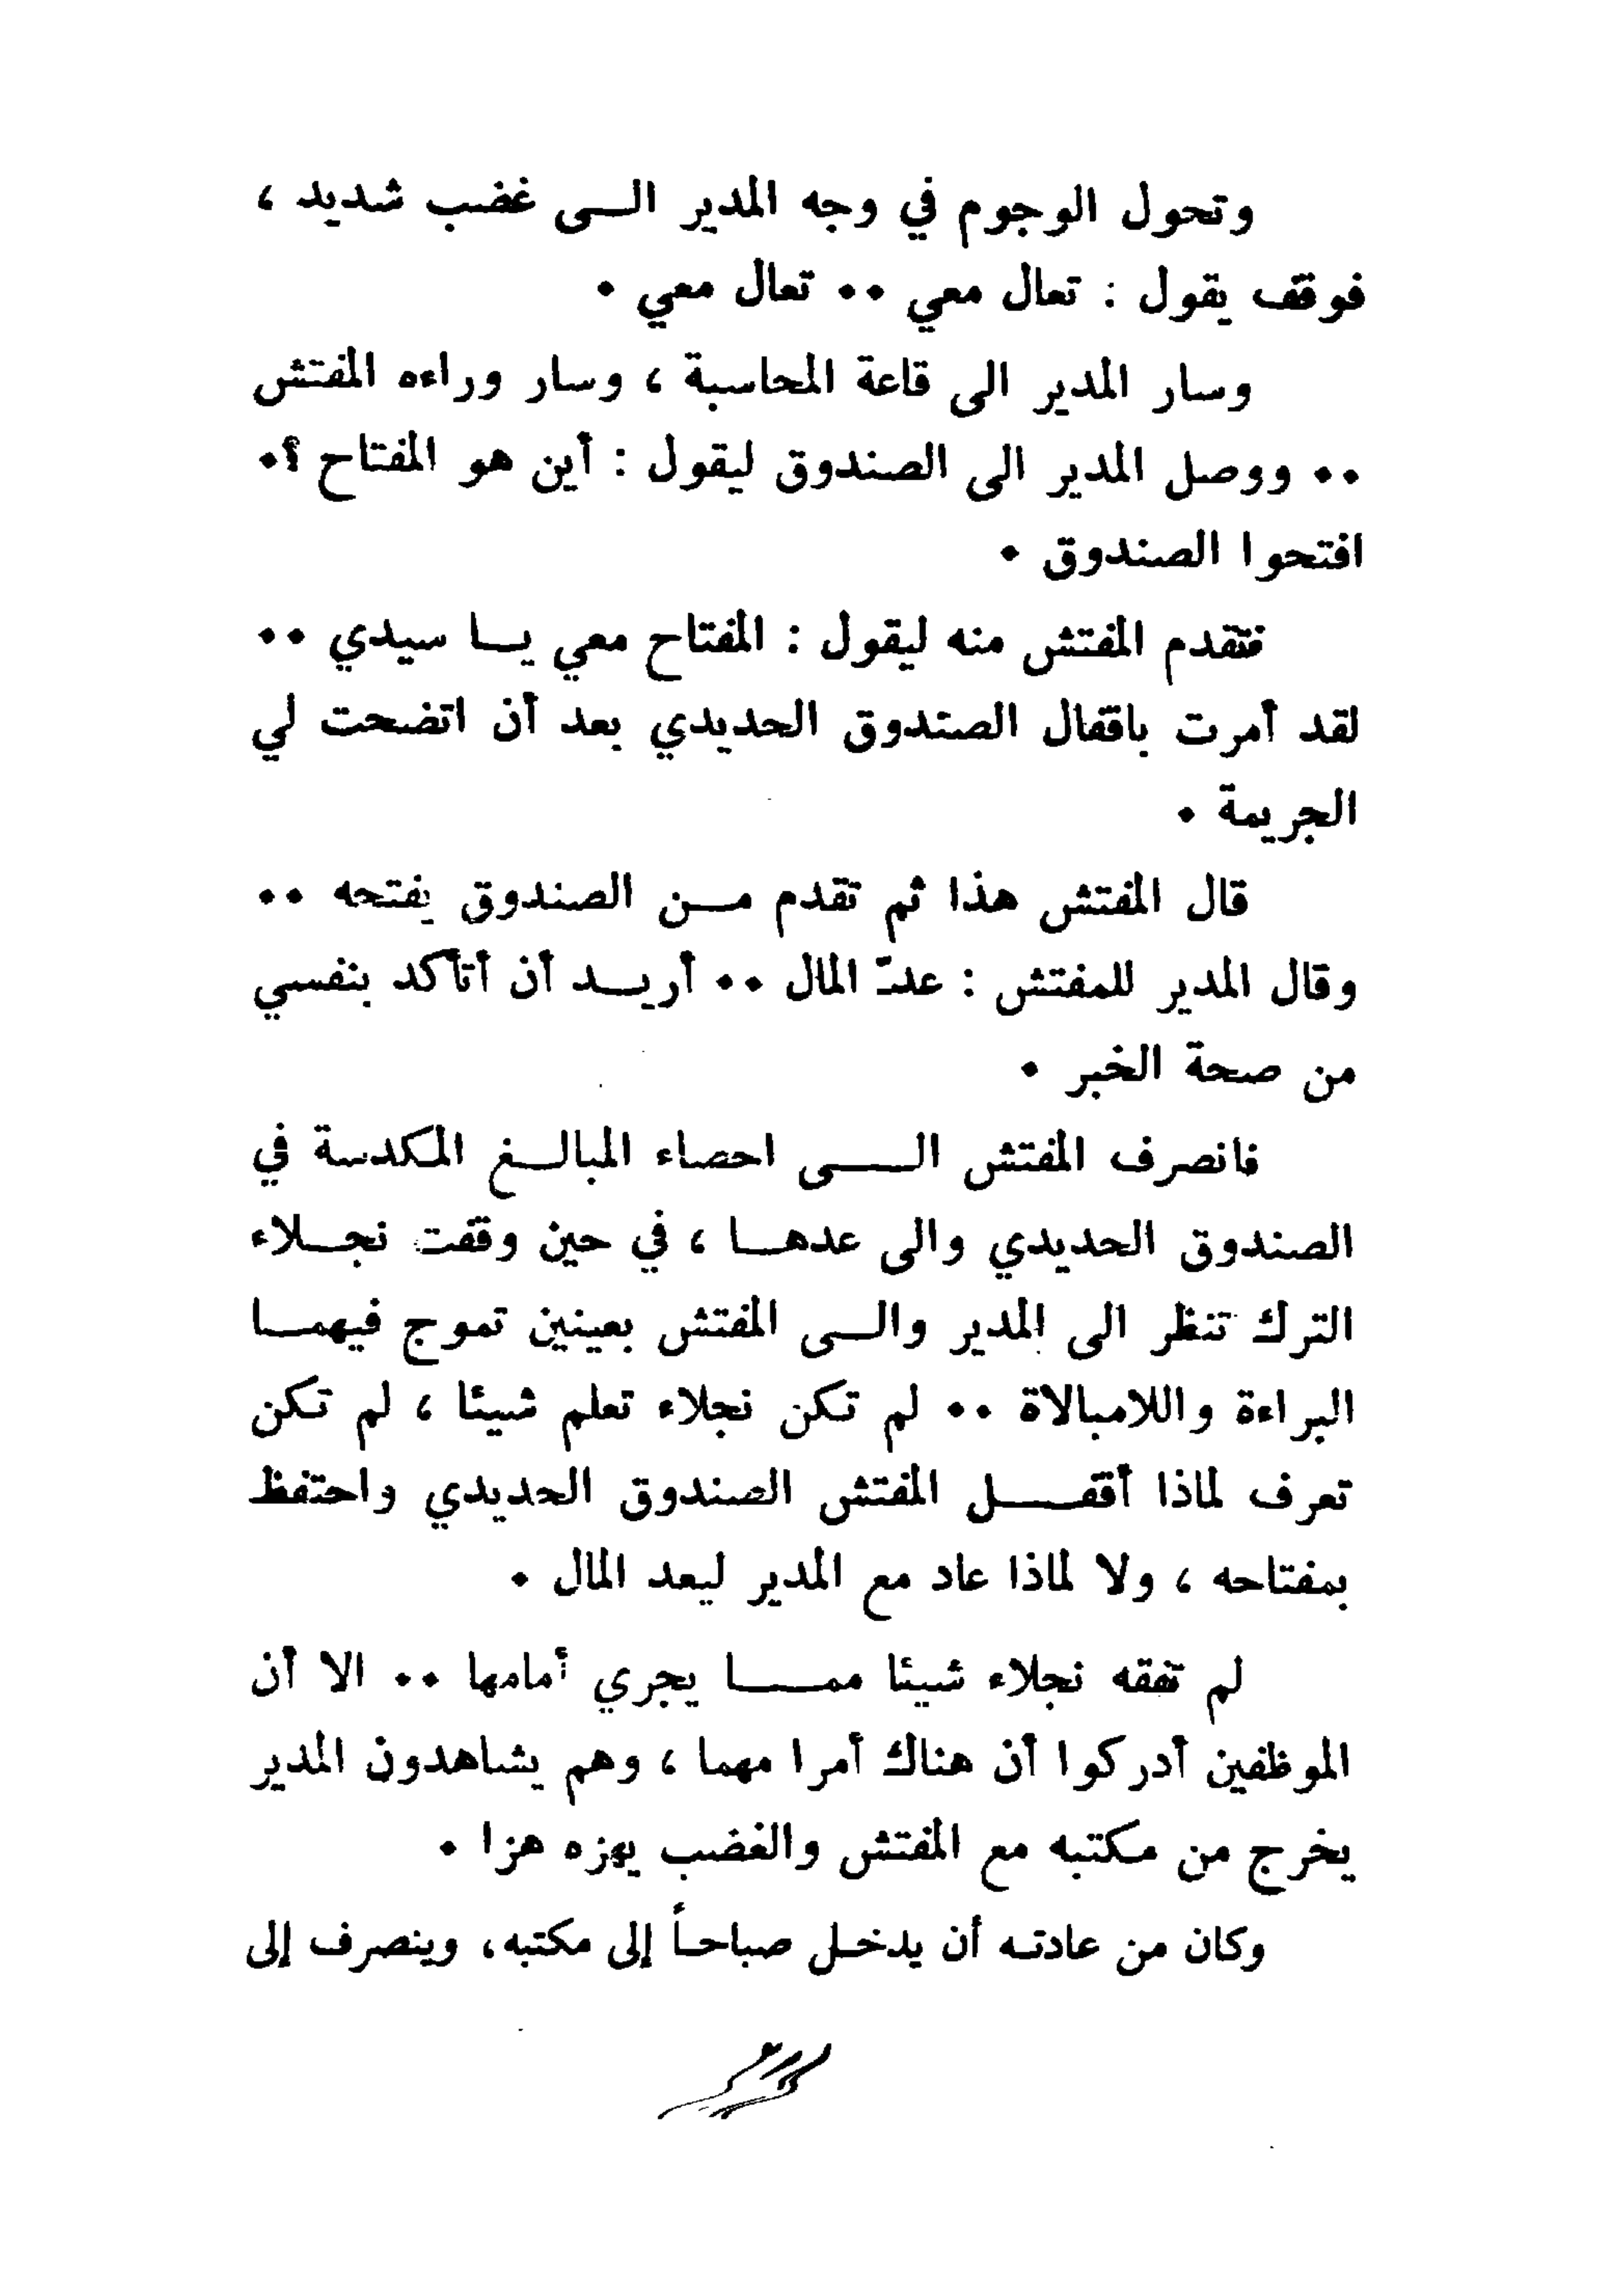 وتحول الوجوم في وجه المدير الــى غضب شديد ،
فوقف يقول : تعال معي ٠٠ تعال معي ٠
وسار المدير الى قاعة المحاسبة ، وسار وراءه المفتش
٠٠ ووصل المدير الى الصندوق ليقول : أين هو المفتاح ؟٠
افتحوا الصندوق ٠
فتقدم المفتش منه ليقول : المفتاح معي يــا سيدي ٠٠
لقد أمرت باقفال الصندوق الحديدي بعد أن اتضحت لي
الجريمة ٠
قال المفتش هذا ثم تقدم مــن الصندوق يفتحه ٠٠
وقال المدير للمفتش : عدّ المال ٠٠ أريــد أن أتأكد بنفسي
من صحة الخبر ٠
فانصرف المفتش الــــى احصاء المبالــغ المكدسة في
الصندوق الحديدي والى عدهــا ، في حين وقفت نجــلاء
الترك تنظر الى المدير والــى المفتش بعينين تموج فيهمــا
البراءة واللامبالاة ٠٠ لم تكن نجلاء تعلم شيئا ، لم تكن
تعرف لماذا أقفــــل المفتش الصندوق الحديدي واحتفظ
بمفتاحه ، ولا لماذا عاد مع المدير ليعد المال ٠
لم تفقه نجلاء شيئا ممــــا يجري أمامها ٠٠ الا أن
الموظفين أدركوا أن هناك أمرا مهما ، وهم يشاهدون المدير
يخرج من مكتبه مع المفتش والغضب يهزه هزا ٠
وكان من عادتـه أن يدخـل صباحـاً إلى مكتبه، وينصرف إلى